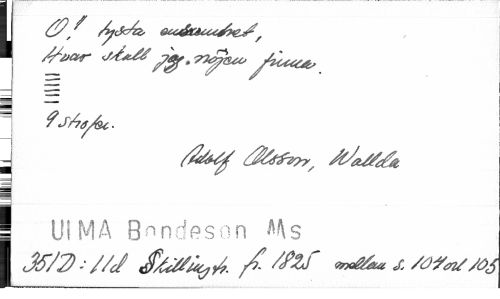 O!! tysta ensamhet,
Hvar skall jag nöjen finna.
9 strofer.
Adolf Olsson, Wallda
ULMA Bondeson Ms
351D: 11d Skillingtr. fr. 1825 mellan s. 104 och 105